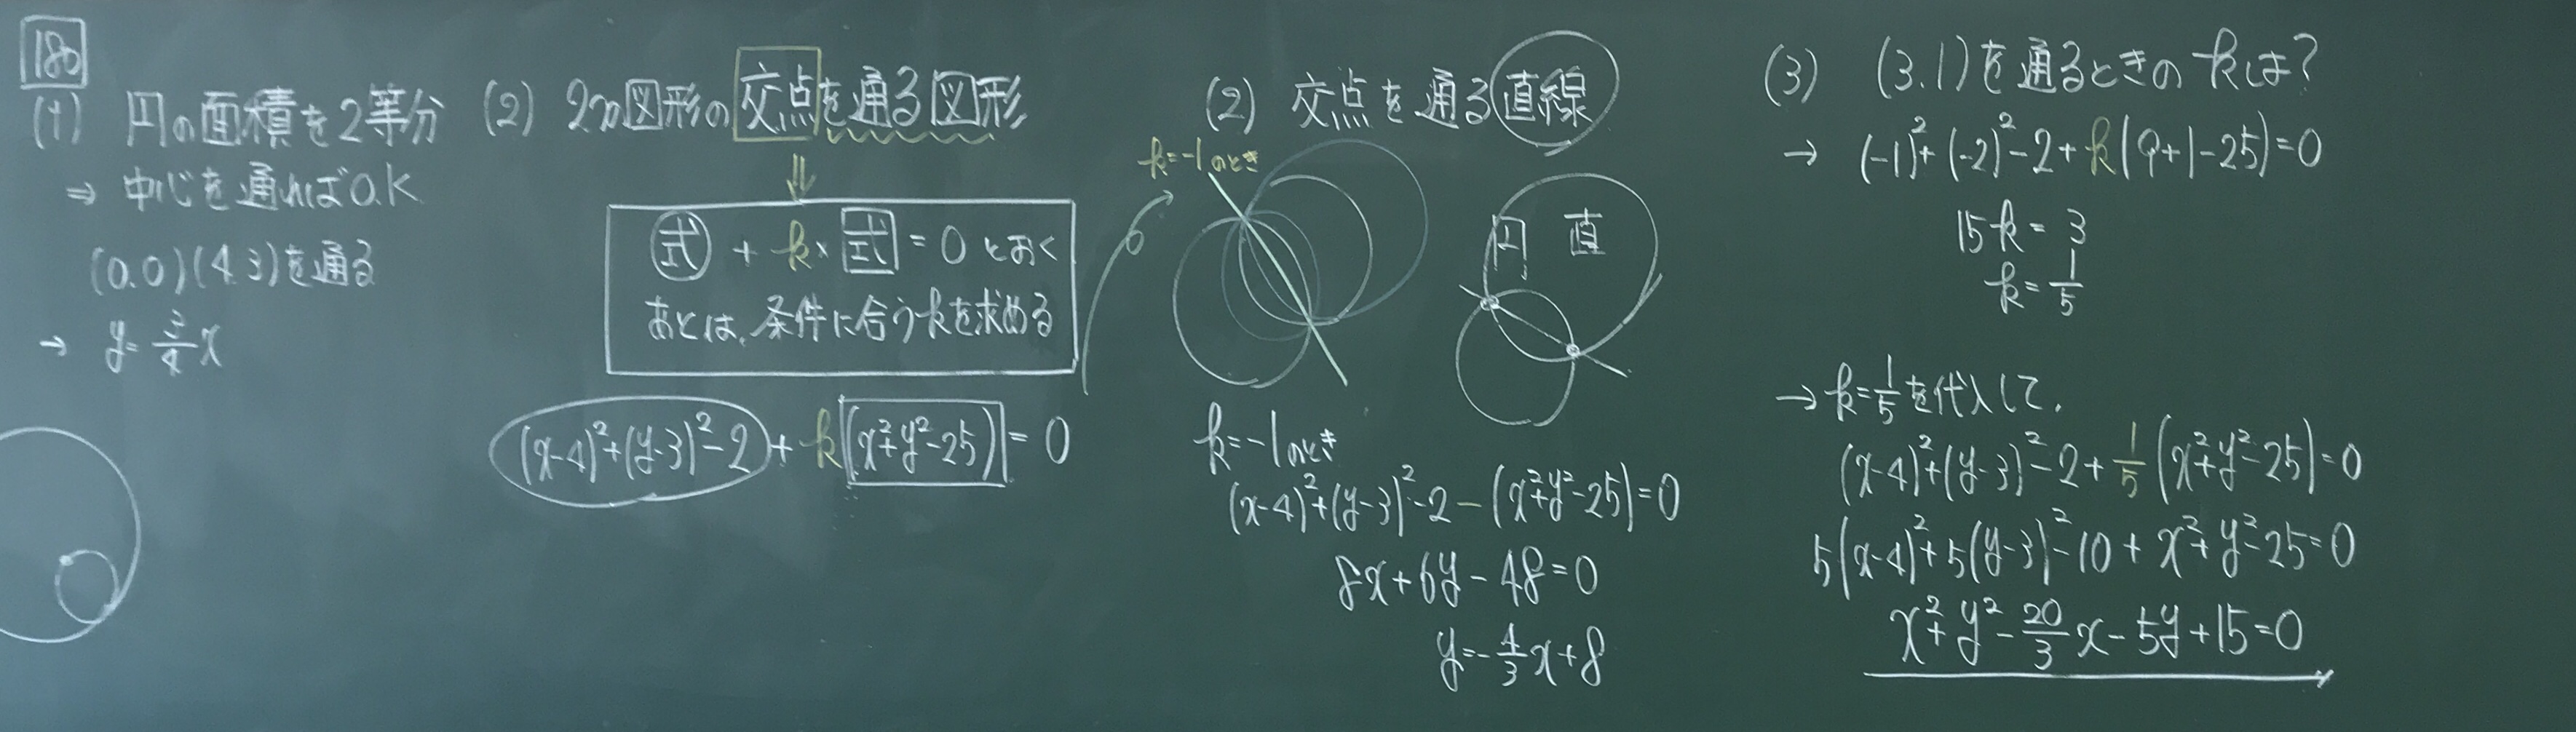 180
(1) 円の面積を2等分
⇒ 中心を通ればO.K
(0.0)(4.3)を通る
→ y=3/4x
(2) 2つの図形の交点を通る図形
⇓
式 + k×式 = 0 とおく
あとは、条件に合うkを求める
(x-4)²+(y-3)²-2+k(x²+y²-25)=0
(2) 交点を通る直線
k=-1のとき
円 直
k=-1のとき
(x-4)²+(y-3)²-2-(x²+y²-25)=0
8x+6y-48=0
y=-4/3x+8
(3) (3.1)を通るときのkは?
→ (-1)²+(-2)²-2+k(9+1-25)=0
15k=3
k=1/5
→k=1/5を代入して.
(x-4)²+(y-3)²-2+1/5(x²+y²-25)=0
5(x-4)²+5(y-3)²-10+x²+y²-25=0
x²+y²-20/3x-5y+15=0